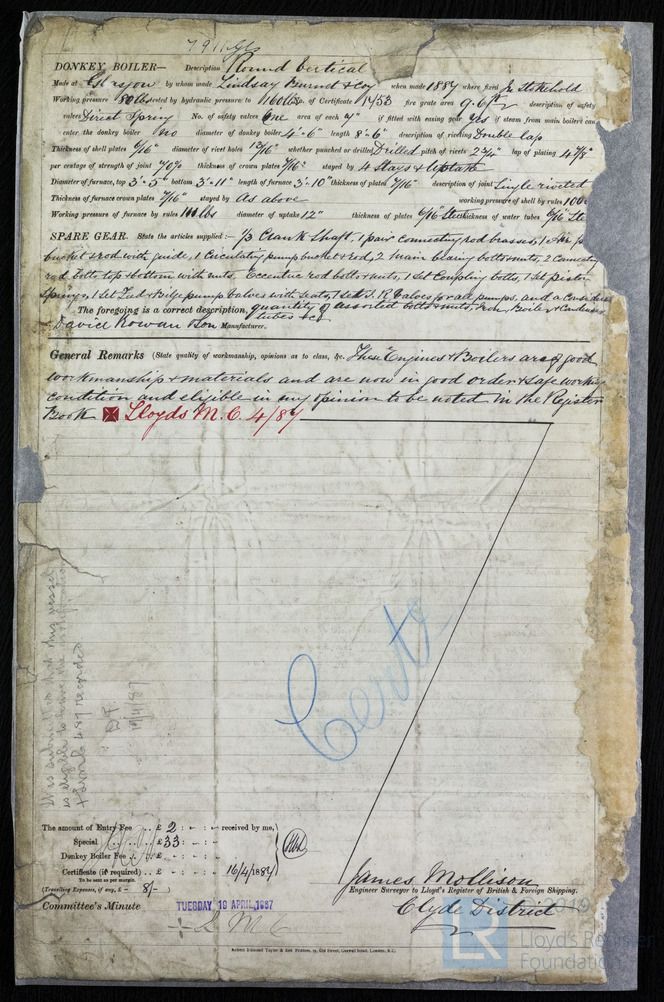 DONKEY BOILER— Description Round Vertical
Made at Glasgow by whom made Lindsay Burnet & Coy when made 1887 where fixed In Stokehold
Working pressure 80lbs tested by hydraulic pressure to 160lbs No. of Certificate 1453 fire grate area 9.6ft² description of safety
valves Direct Spring No. of safety valves One area of each 7" if fitted with easing gear Yes if steam from main boilers can
enter the donkey boiler no diameter of donkey boiler 4'-6" length 8'-6" description of riveting Double lap
Thickness of shell plates 6/16" diameter of rivet holes 13/16" whether punched or drilled Drilled pitch of rivets 2 3/4" lap of plating 4 7/8"
per centage of strength of joint 70% thickness of crown plates 7/16" stayed by 4 Stays & uptake
Diameter of furnace, top 3'-5" bottom 3'-11" length of furnace 3'-10" thickness of plates 7/16" description of joint Single riveted
Thickness of furnace crown plates 7/16" stayed by As above working pressure of shell by rules 100
Working pressure of furnace by rules lbs diameter of uptake 12" thickness of plates 6/16" Steel thickness of water tubes 6/16" Ste
SPARE GEAR. State the articles supplied:— 1/3 Crank Shaft, 1 pair connecting rod brasses, 1 Air p
bucket & rod with guide, 1 Circulating pump bucket & rod, 2 main bearing bolts & nuts, 2 Connecting
rod bolts, top & bottom with nuts, Eccentric rod bolts & nuts, 1 Set Coupling bolts, 1 Set piston
Springs, 1 Set Feed & Bilge pump Valves with seats, 1 set I.R. Valves for all pumps, and a Considerable
The foregoing is a correct description, quantity of assorted bolts & nuts, Iron, Boiler & Condenser
tubes &c
David Rowan & Son Manufacturer.
General Remarks (State quality of workmanship, opinions as to class, &c. These Engines & Boilers are of good
workmanship & materials and are now in good order & safe working
condition and eligible in my opinion to be noted in the Register
Book Lloyds M.C. 4/87
Cert
It is submitted that this vessel
is eligible to have the notification
4 87 recorded
19/4/87
The amount of Entry Fee .. £ 2 : - : - received by me,
Special .. .. £ 33 : - : -
Donkey Boiler Fee .. £ : :
Certificate (if required) .. £ - : : 16/4/1887
To be sent as per margin.
(Travelling Expenses, if any, £ - 8/- )
James Mollison
Engineer Surveyor to Lloyd's Register of British & Foreign Shipping.
Clyde District
Committee's Minute TUESDAY 19 APRIL 1887
L M C
© 2019
LR
Lloyd's Register
Foundation